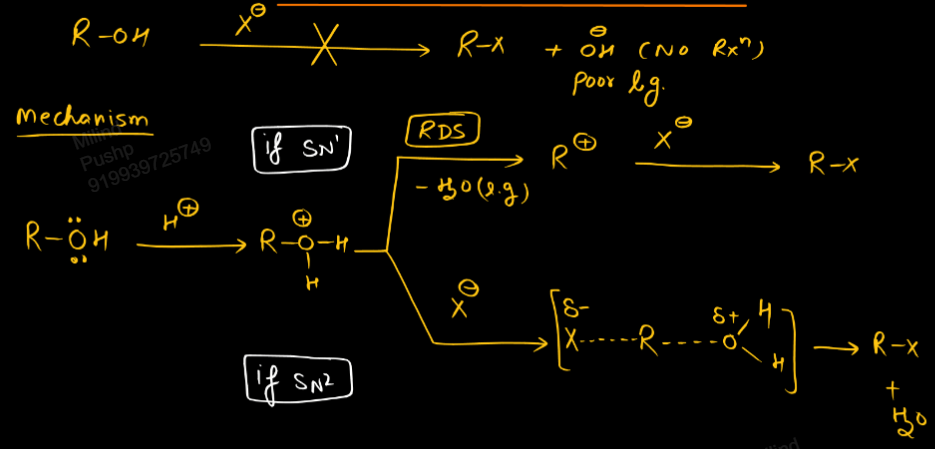 R-OH X⊖ R-X + ⊖OH (No Rxⁿ)
Poor l.g.
Mechanism
Milind
Pushp
919939725749
if SN¹
RDS
R⊕ X⊖ R-X
- H₂O (l.g)
R-ÖH H⊕ R-O⊕-H
H
X⊖
[δ- X------R-----O δ+ H H] → R-X
+
H₂O
if SN²